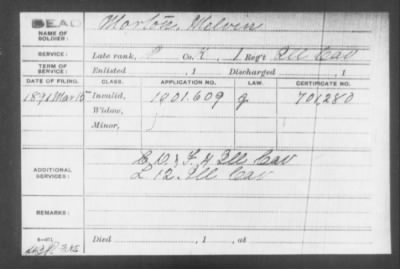 DEAD
NAME OF SOLDIER: Morton, Melvin
SERVICE: Late rank, P Co. K, 1 Reg't Ill Cav
TERM OF SERVICE: Enlisted , 1 Discharged , 1
DATE OF FILING. CLASS. APPLICATION NO. LAW. CERTIFICATE NO.
1891 Mar 10 Invalid, 1001.609 g 701280
Widow,
Minor,
ADDITIONAL SERVICES: C, D & F, 4 Ill Cav
L 12 Ill Cav
REMARKS:
Died , 1 , at